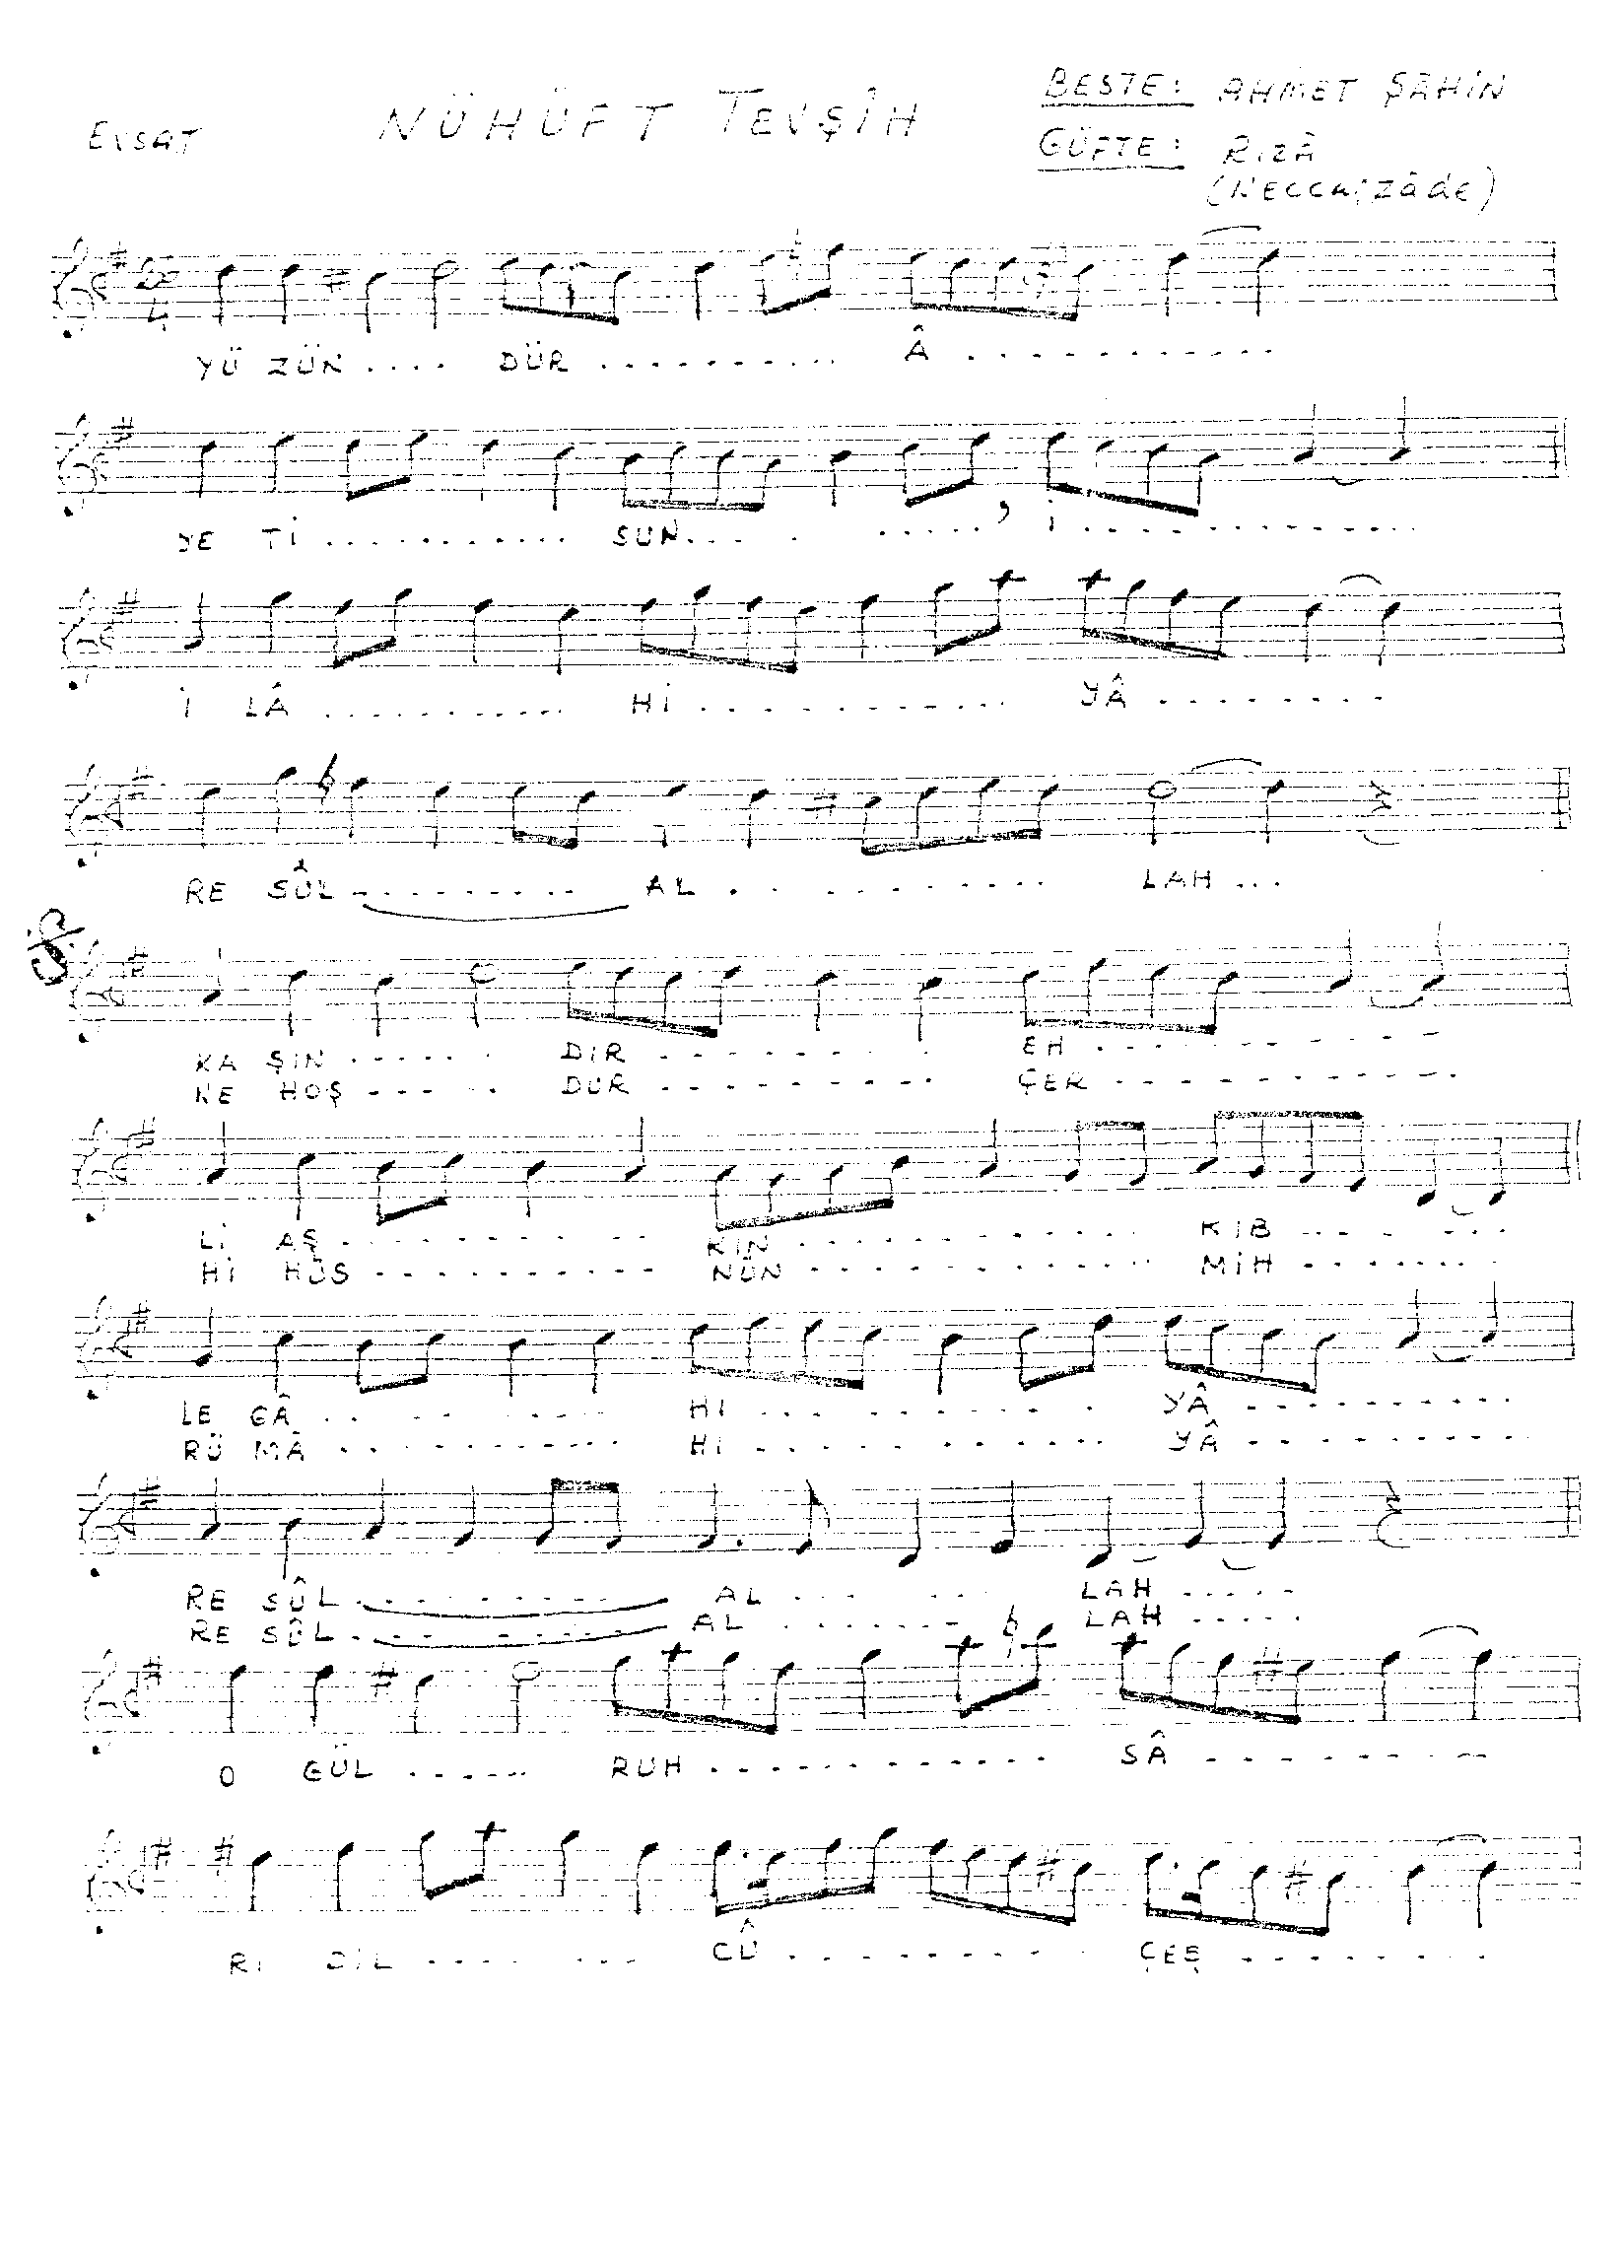 EVSAT
NÜHÜFT TEVŞÎH
BESTE: AHMET ŞAHİN
GÜFTE: RIZÂ
(NECCARZÂDE)
YÜ ZÜN .... DÜR .......... Â ............
YE Tİ ........... SUN.... ......, İ ............
İ LÂ ........... Hİ ............ YÂ ........
RE SÛL --------- AL .......... LAH ...
KA ŞIN ...... DIR ........ EH ..........
NE HOŞ ----- DUR ......... ÇER ..........
Lİ AŞ .......... KIN .......... KIB .......
Hİ HÜS .......... NÜN .......... MİH .......
LE GÂ .......... HI .......... YÂ ..........
RÜ MÂ .......... HI .......... YÂ ..........
RE SÛL .......... AL ...... LAH .....
RE SÛL .......... AL ...... LAH .....
O GÜL ...... RUH .......... SÂ ........
RI DİL ....... CÛ ......... ÇEŞ ........